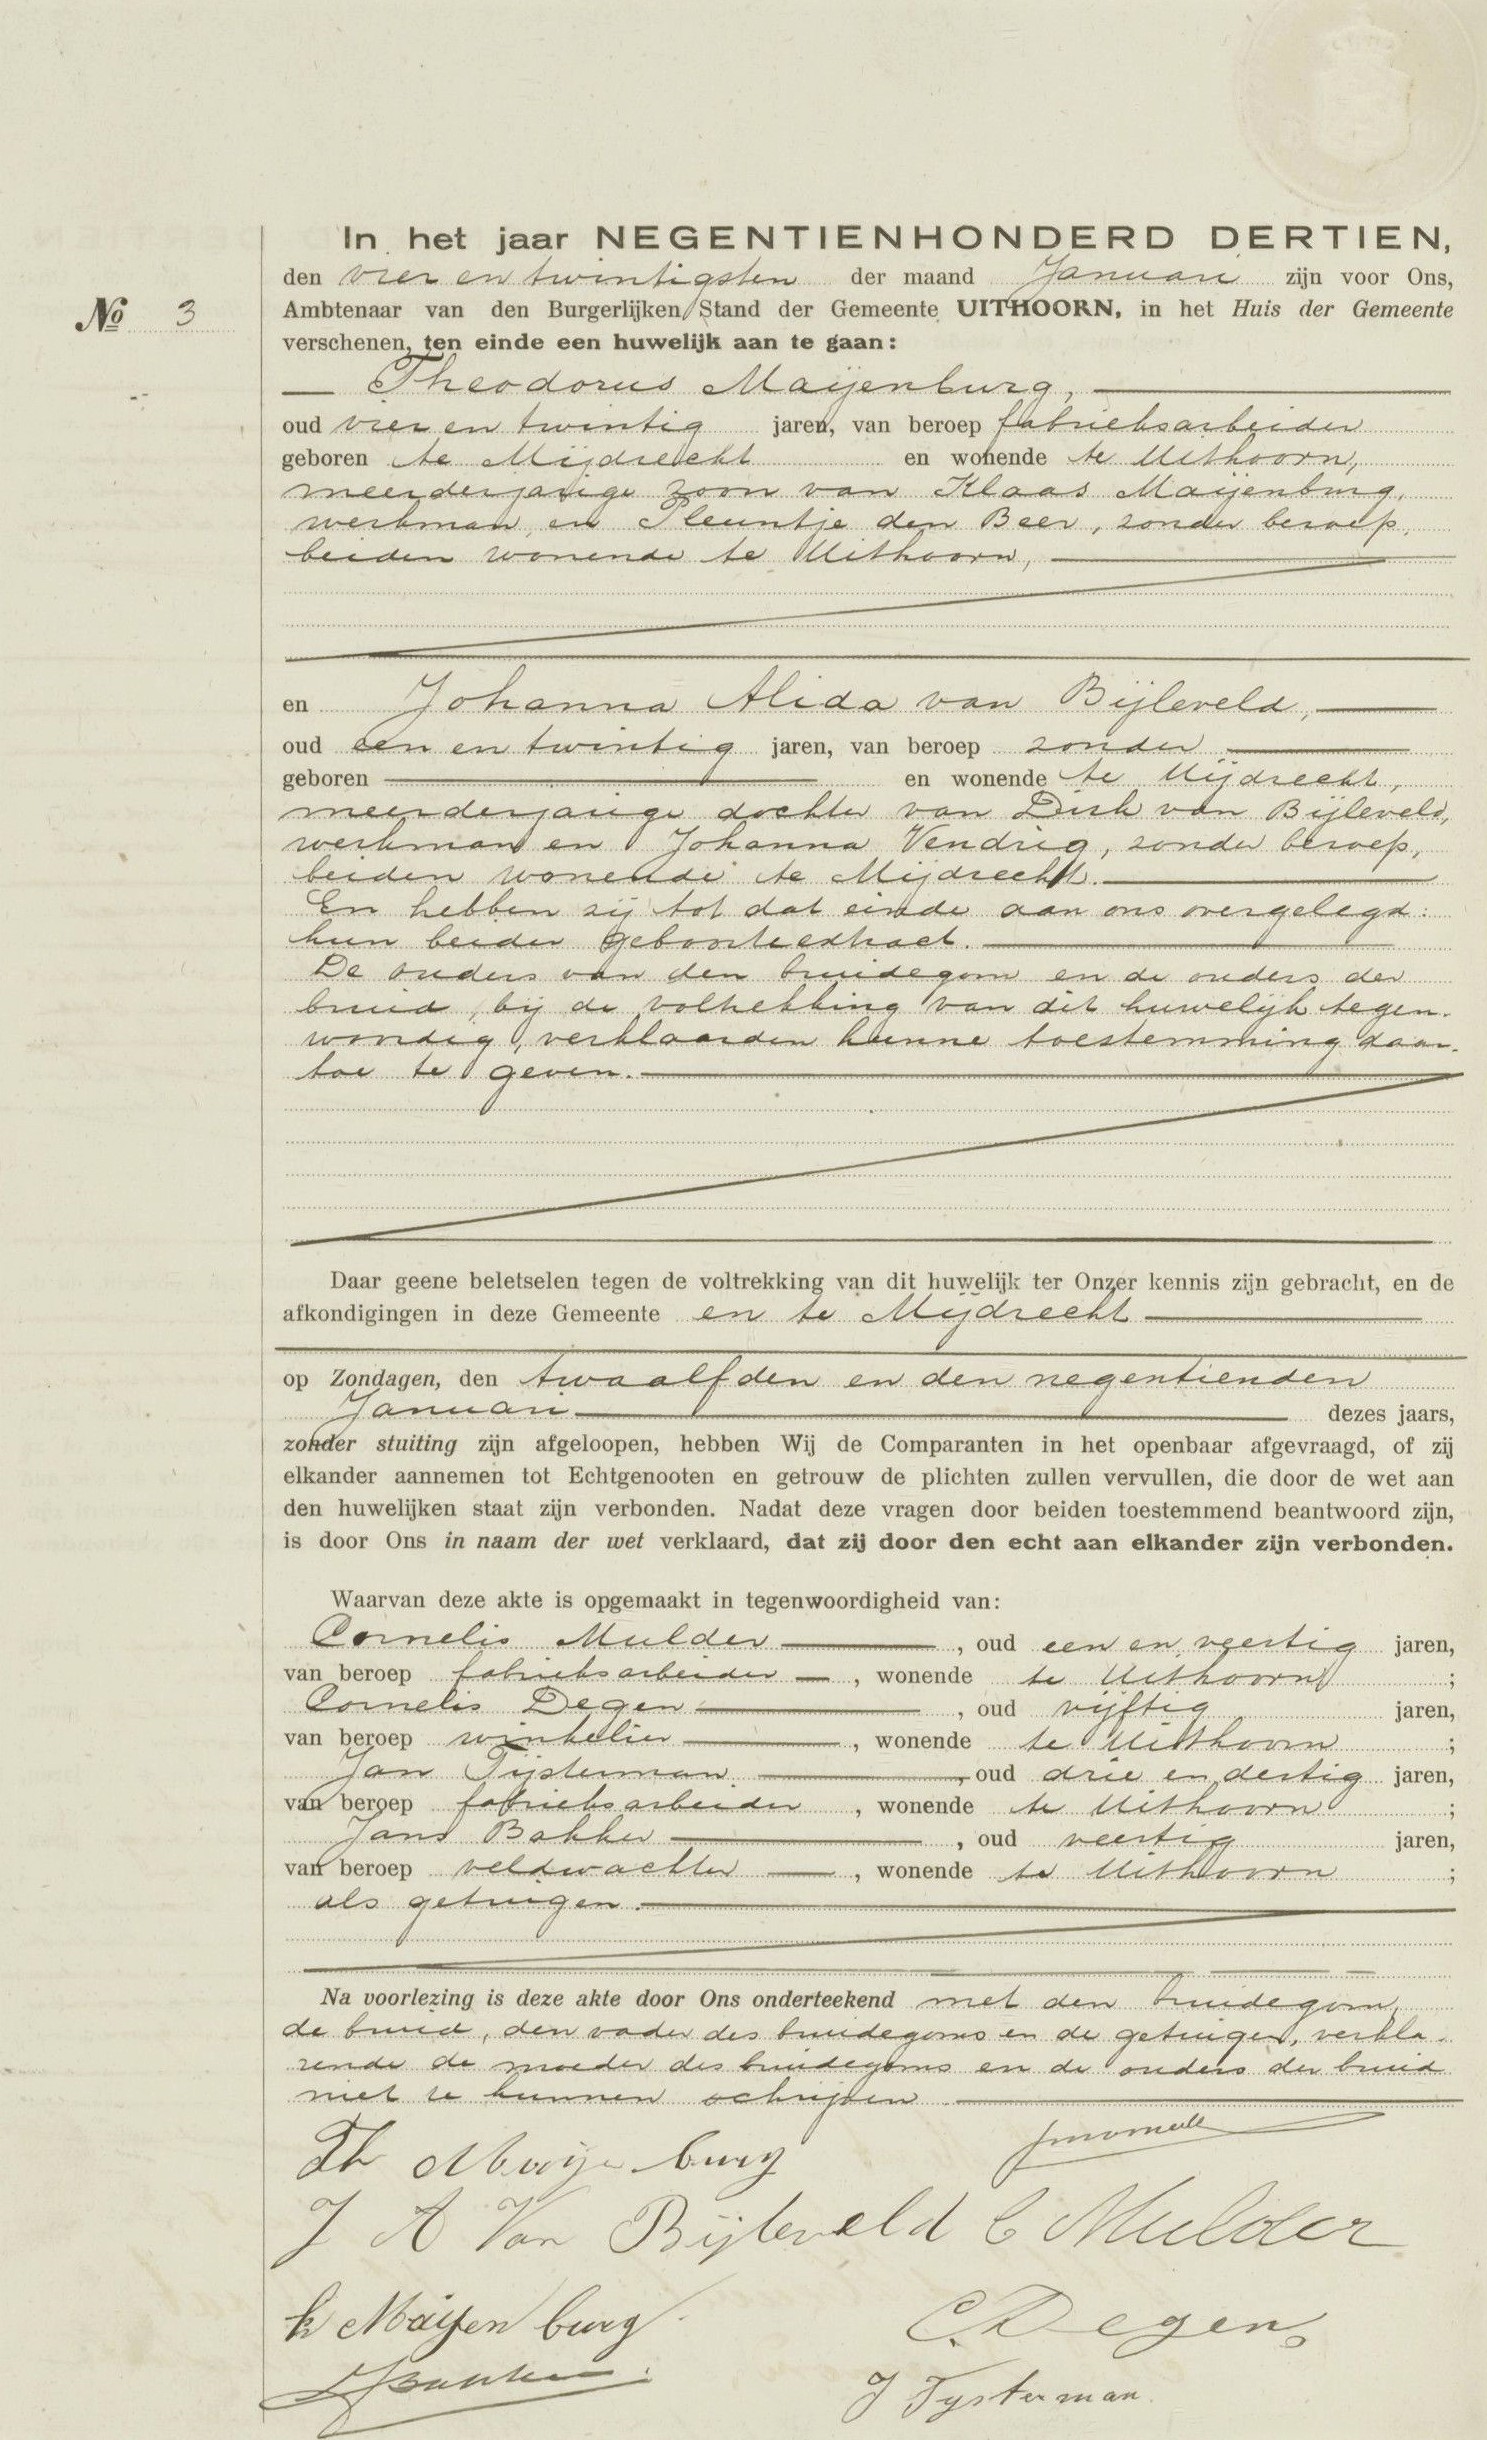 In het jaar NEGENTIENHONDERD DERTIEN,
den vier en twintigsten der maand Januari zijn voor Ons,
No 3
Ambtenaar van den Burgerlijken Stand der Gemeente UITHOORN, in het Huis der Gemeente
verschenen, ten einde een huwelijk aan te gaan:
Theodorus Maijenburg,
oud vier en twintig jaren, van beroep fabrieksarbeider
geboren te Mijdrecht en wonende te Uithoorn,
meerderjarige zoon van Klaas Maijenburg,
werkman en Pleuntje den Beer, zonder beroep,
beiden wonende te Uithoorn,
en Johanna Alida van Bijleveld,
oud een en twintig jaren, van beroep zonder
geboren en wonende te Mijdrecht,
meerderjarige dochter van Dirk van Bijleveld,
werkman en Johanna Vendrig, zonder beroep,
beiden wonende te Mijdrecht.
En hebben zij tot dat einde aan ons overgelegd:
hun beider geboorteextract.
De ouders van den bruidegom en de ouders der
bruid, bij de voltrekking van dit huwelijk tegen-
woordig, verklaarden hunne toestemming daar-
toe te geven.
Daar geene beletselen tegen de voltrekking van dit huwelijk ter Onzer kennis zijn gebracht, en de
afkondigingen in deze Gemeente en te Mijdrecht
op Zondagen, den twaalfden en den negentienden
Januari dezes jaars,
zonder stuiting zijn afgeloopen, hebben Wij de Comparanten in het openbaar afgevraagd, of zij
elkander aannemen tot Echtgenooten en getrouw de plichten zullen vervullen, die door de wet aan
den huwelijken staat zijn verbonden. Nadat deze vragen door beiden toestemmend beantwoord zijn,
is door Ons in naam der wet verklaard, dat zij door den echt aan elkander zijn verbonden.
Waarvan deze akte is opgemaakt in tegenwoordigheid van:
Cornelis Mulder, oud een en veertig jaren,
van beroep fabrieksarbeider, wonende te Uithoorn;
Cornelis Degen, oud vijftig jaren,
van beroep winkelier, wonende te Uithoorn;
Jan Tijsterman, oud drie en dertig jaren,
van beroep fabrieksarbeider, wonende te Uithoorn;
Jans Bakker, oud veertig jaren,
van beroep veldwachter, wonende te Uithoorn;
als getuigen.
Na voorlezing is deze akte door Ons onderteekend met den bruidegom,
de bruid, den vader des bruidegoms en de getuigen, verkla-
rende de moeder des bruidegoms en de ouders der bruid
niet te kunnen schrijven.
Th Maijenburg
J A Van Bijleveld C Mulder
k Maijenburg C. Degen
JBakker
J Tysterman